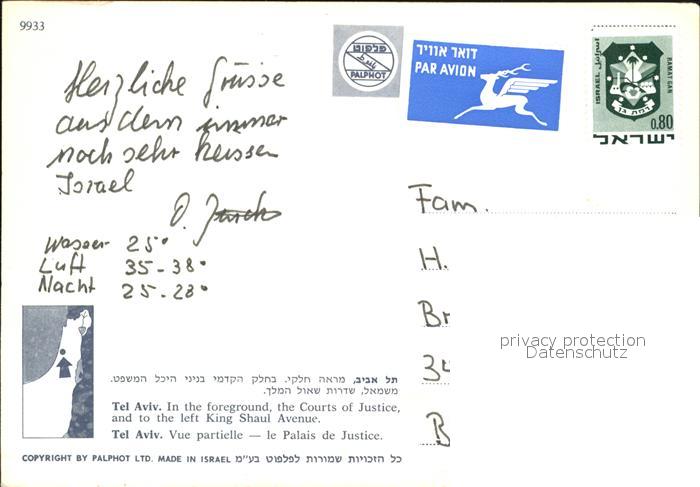 9933
Herzliche Grüsse
aus dem immer
noch sehr heissen
Israel
Wasser 25°
Luft 35-38°
Nacht 25-28°
פלפוט
PALPHOT
דואר אוויר
PAR AVION
ISRAEL
RAMAT GAN
רמת גן
0.80
ישראל
Fam.
H.
Br
34
B
privacy protection
Datenschutz
תל אביב, מראה חלקי. בחלק הקדמי בניני היכל המשפט.
משמאל, שדרות שאול המלך.
Tel Aviv. In the foreground, the Courts of Justice,
and to the left King Shaul Avenue.
Tel Aviv. Vue partielle — le Palais de Justice.
COPYRIGHT BY PALPHOT LTD. MADE IN ISRAEL כל הזכויות שמורות לפלפוט בע"מ